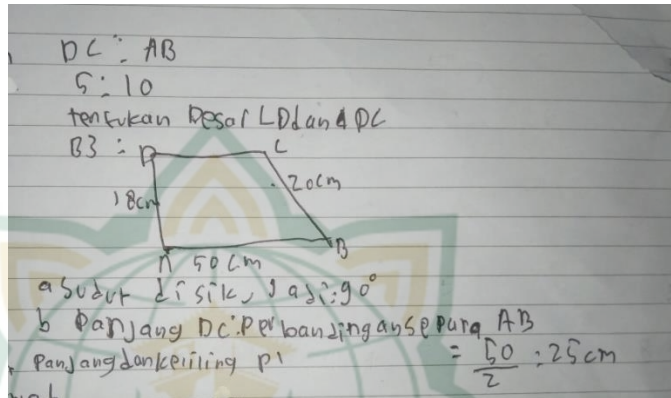 DC : AB
5 : 10
tentukan besar LD dan DC
B3 :
D C
20cm
18cm
A 50 cm B
a sudut disik, Jadi : 90°
b Panjang DC : Perbandingan separa AB
= 50/2 : 25 cm
Panjang dan keliling